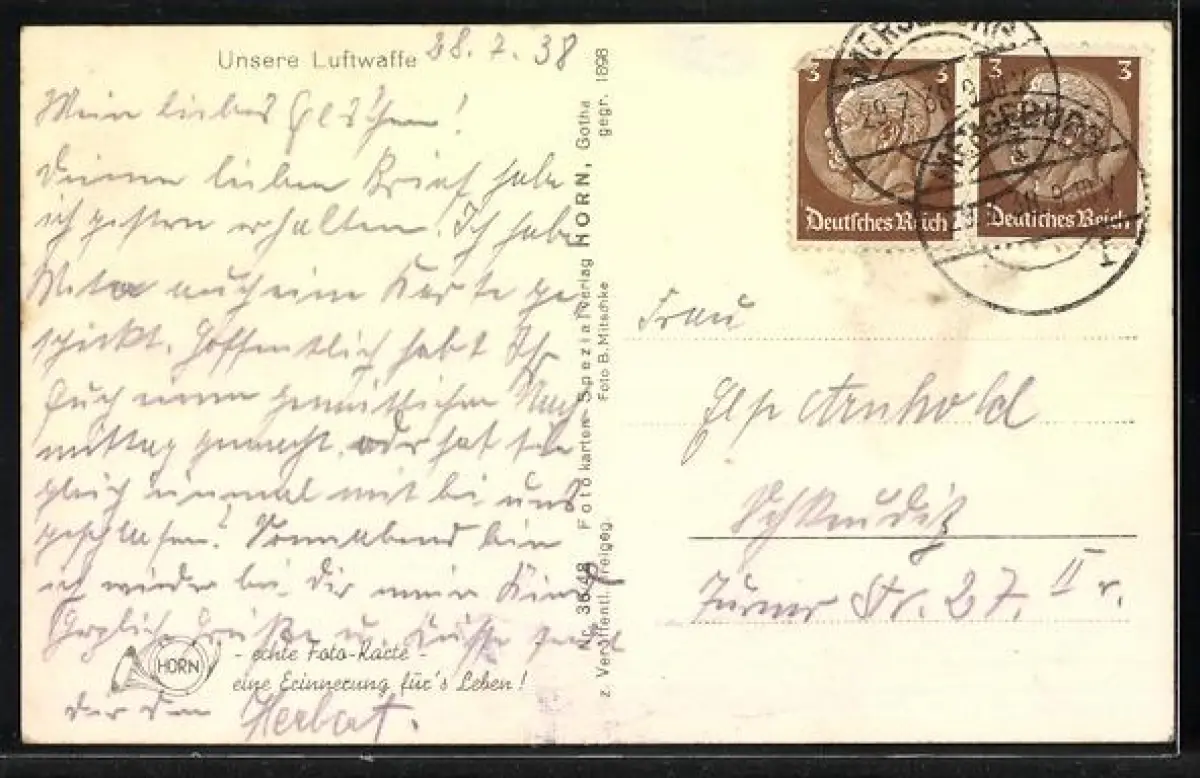 Unsere Luftwaffe 28.7.38
Mein liebes !
Deinen lieben Brief habe
ich gestern erhalten. Ich habe
auch eine Karte ge-
schickt. Hoffentlich habt Ihr
Euch einen gemütlichen Nach
mittag gemacht, oder hat sie
gleich einmal mit bei uns
geschlafen? Sonnabend bin
ich wieder bei Dir mein Kind
Herzliche Grüße u. Küsse sendet
HORN
- echte Foto-Karte -
eine Erinnerung für's Leben!
Dir Dein Herbert.
Nr. 3648 Fotokarten-Spezialverlag HORN, Gotha
z. Veröffentl. freigeg. Foto B. Mitschke gegr. 1898
3 3
3 3
Deutsches Reich
Deutsches Reich
MERSEBURG
29.7.38
MERSEBURG
Frau
Arnhold
Schkeuditz
Turner Str. 27. II r.